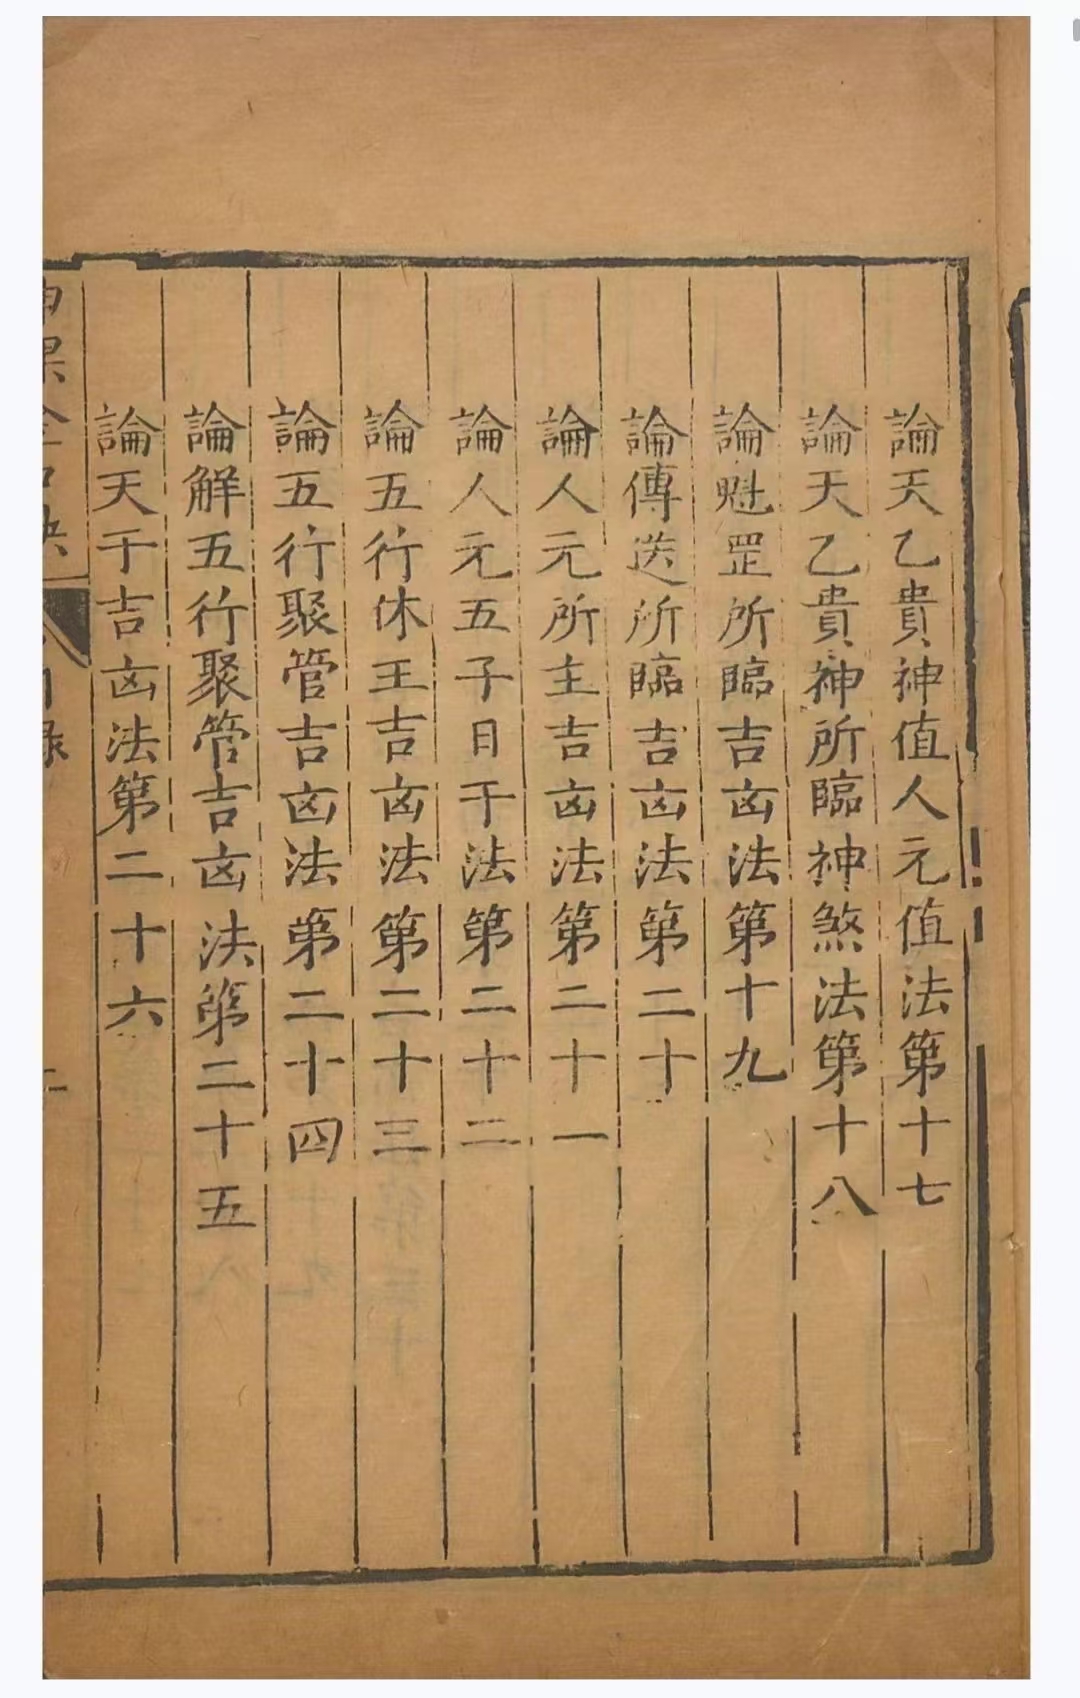 論天乙貴神值人元值法第十七
論天乙貴神所臨神煞法第十八
論魁罡所臨吉凶法第十九
論傳送所臨吉凶法第二十
論人元所主吉凶法第二十一
論人元五子日干法第二十二
論五行休王吉凶法第二十三
論五行聚管吉凶法第二十四
論解五行聚管吉凶法第二十五
論天干吉凶法第二十六
目錄